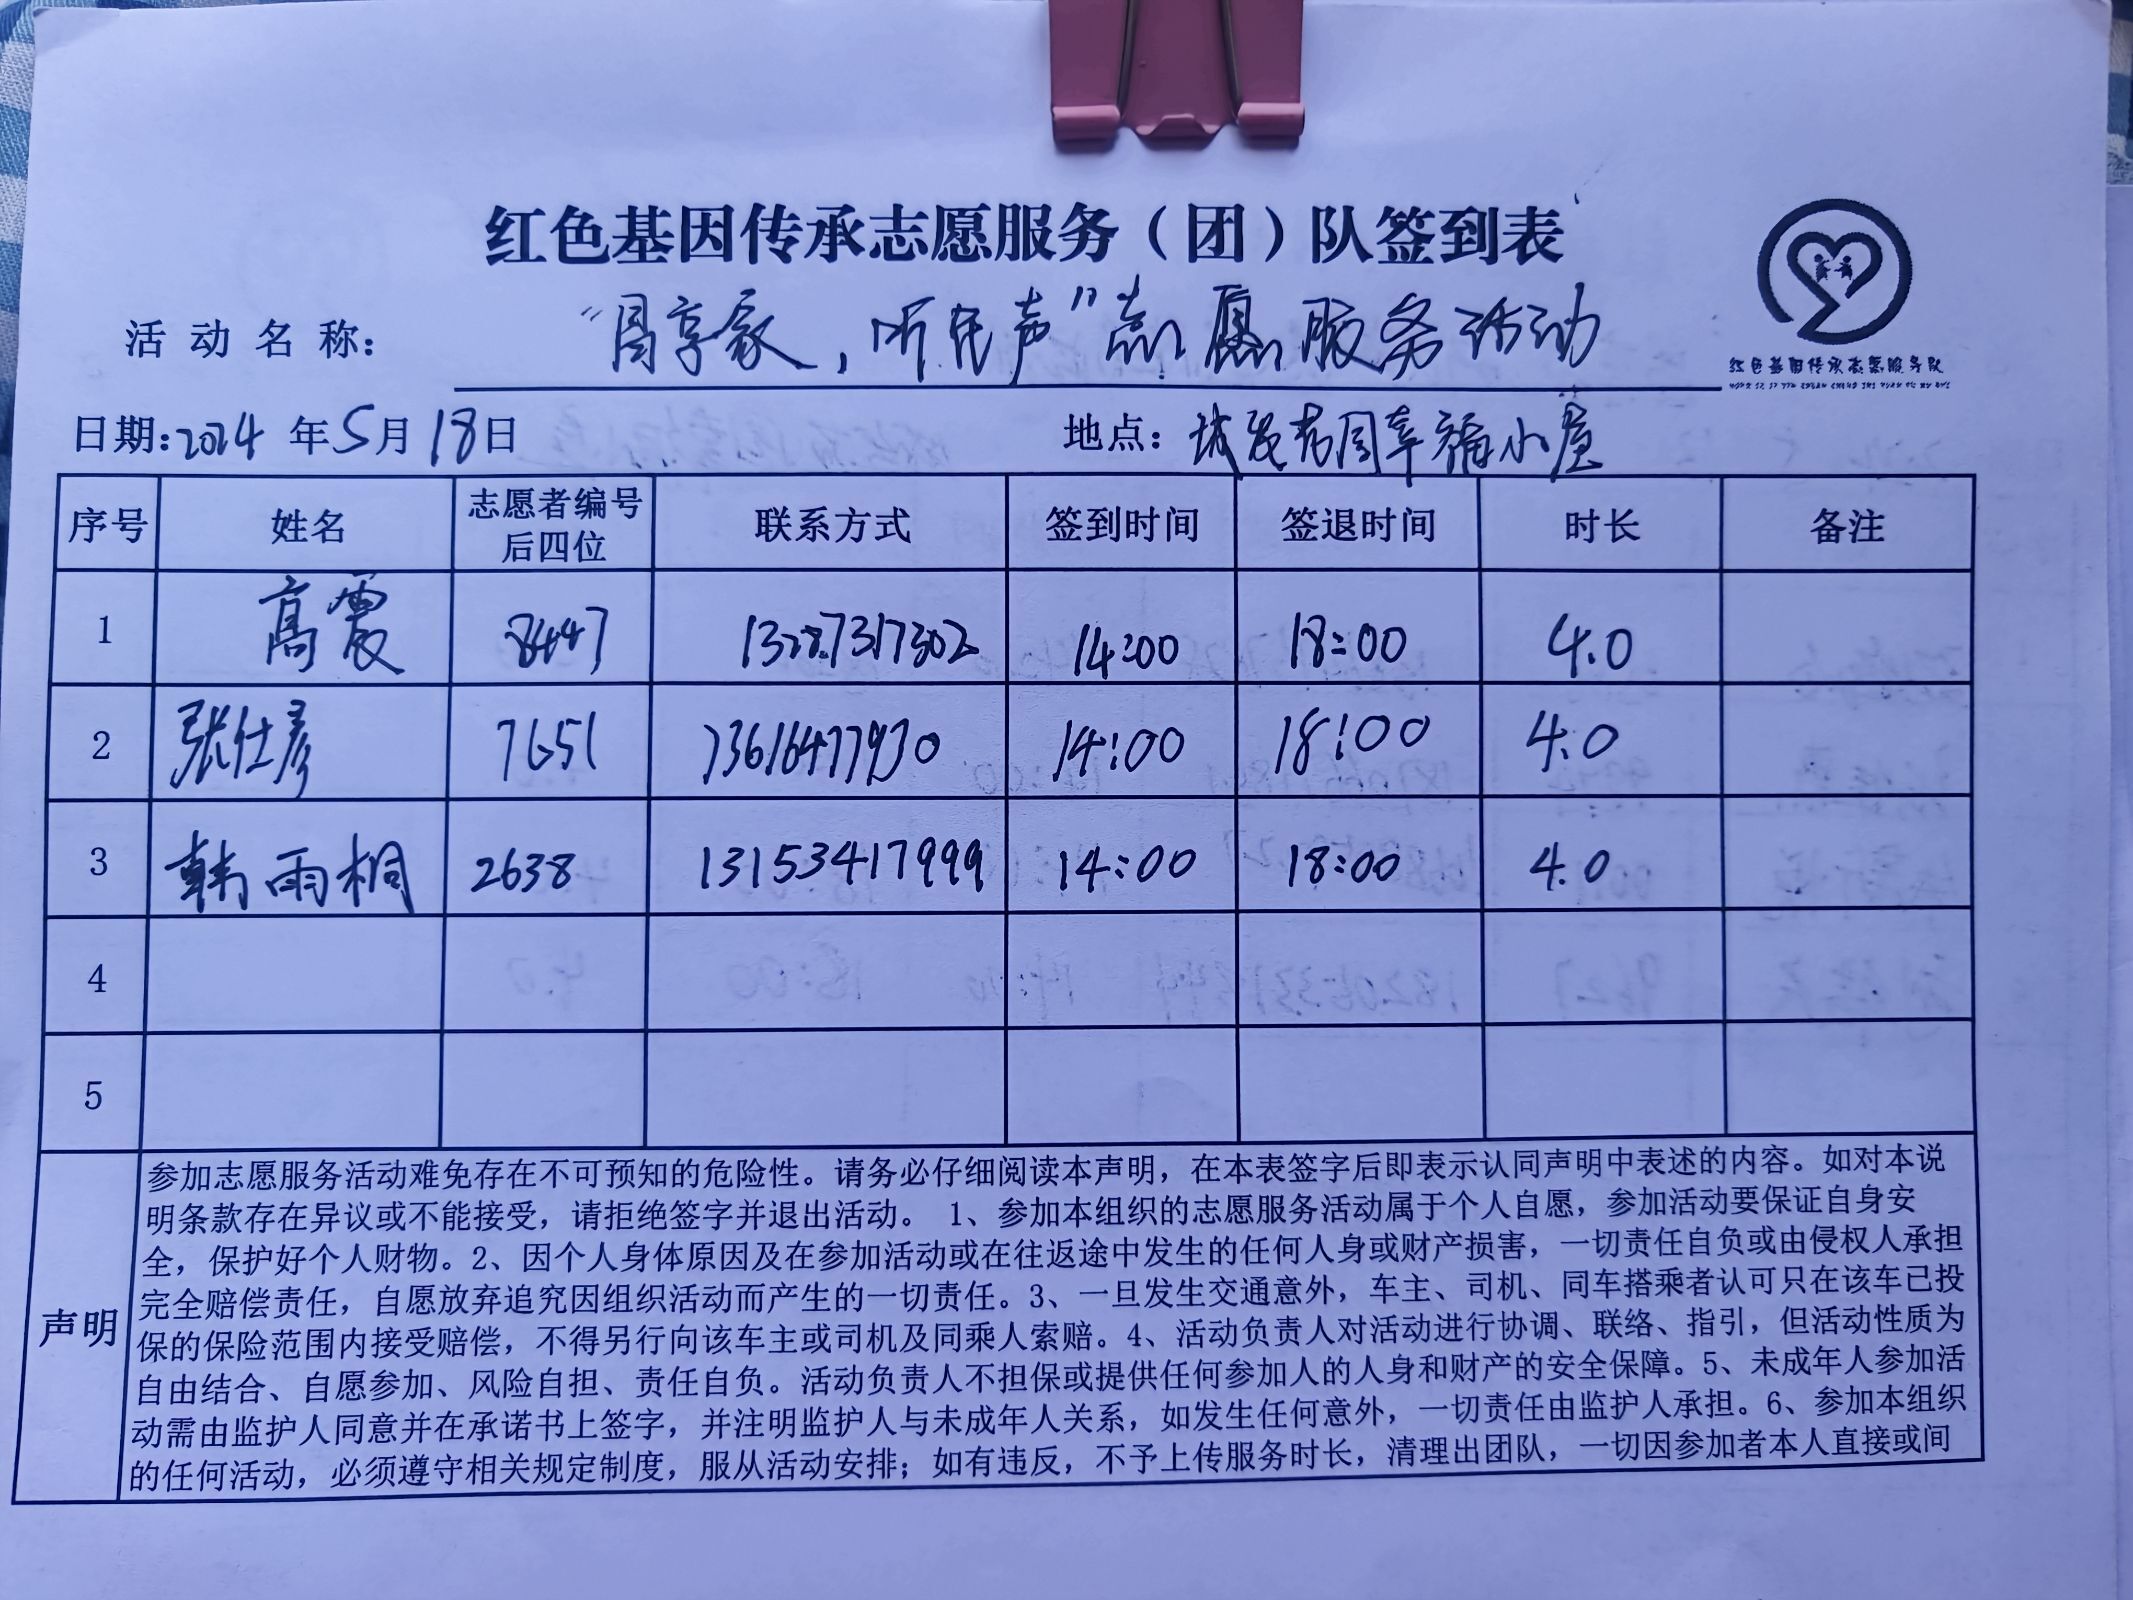 红色基因传承志愿服务（团）队签到表
活动名称： “享家，听民声”志愿服务活动
红色基因传承志愿服务队
日期:2024年5月18日 地点：城发花园幸福小屋
序号 姓名 志愿者编号后四位 联系方式 签到时间 签退时间 时长 备注
1 高震 8447 13287317302 14:00 18:00 4.0
2 张仕彦 7651 13616477930 14:00 18:00 4.0
3 韩雨桐 2638 13153417999 14:00 18:00 4.0
4
5
声明
参加志愿服务活动难免存在不可预知的危险性。请务必仔细阅读本声明，在本表签字后即表示认同声明中表述的内容。如对本说
明条款存在异议或不能接受，请拒绝签字并退出活动。 1、参加本组织的志愿服务活动属于个人自愿，参加活动要保证自身安
全，保护好个人财物。2、因个人身体原因及在参加活动或在往返途中发生的任何人身或财产损害，一切责任自负或由侵权人承担
完全赔偿责任，自愿放弃追究因组织活动而产生的一切责任。3、一旦发生交通意外，车主、司机、同车搭乘者认可只在该车已投
保的保险范围内接受赔偿，不得另行向该车主或司机及同乘人索赔。4、活动负责人对活动进行协调、联络、指引，但活动性质为
自由结合、自愿参加、风险自担、责任自负。活动负责人不担保或提供任何参加人的人身和财产的安全保障。5、未成年人参加活
动需由监护人同意并在承诺书上签字，并注明监护人与未成年人关系，如发生任何意外，一切责任由监护人承担。6、参加本组织
的任何活动，必须遵守相关规定制度，服从活动安排；如有违反，不予上传服务时长，清理出团队，一切因参加者本人直接或间